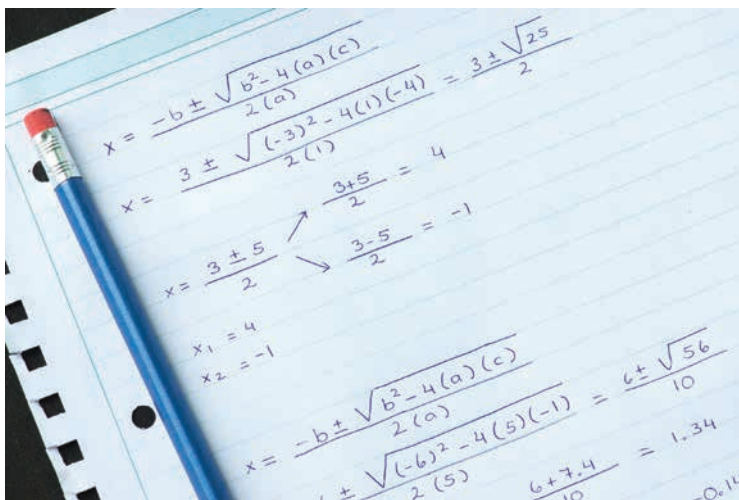 x = \frac{-b ± \sqrt{b^2 - 4(a)(c)}}{2(a)}
x = \frac{3 ± \sqrt{(-3)^2 - 4(1)(-4)}}{2(1)} = \frac{3 ± \sqrt{25}}{2}
x = \frac{3 ± 5}{2} ↗ \frac{3+5}{2} = 4
↘ \frac{3-5}{2} = -1
x_1 = 4
x_2 = -1
x = \frac{-b ± \sqrt{b^2 - 4(a)(c)}}{2(a)}
± \sqrt{(-6)^2 - 4(5)(-1)} / 2(5) = \frac{6 ± \sqrt{56}}{10}
6 + 7.4 = 1.34